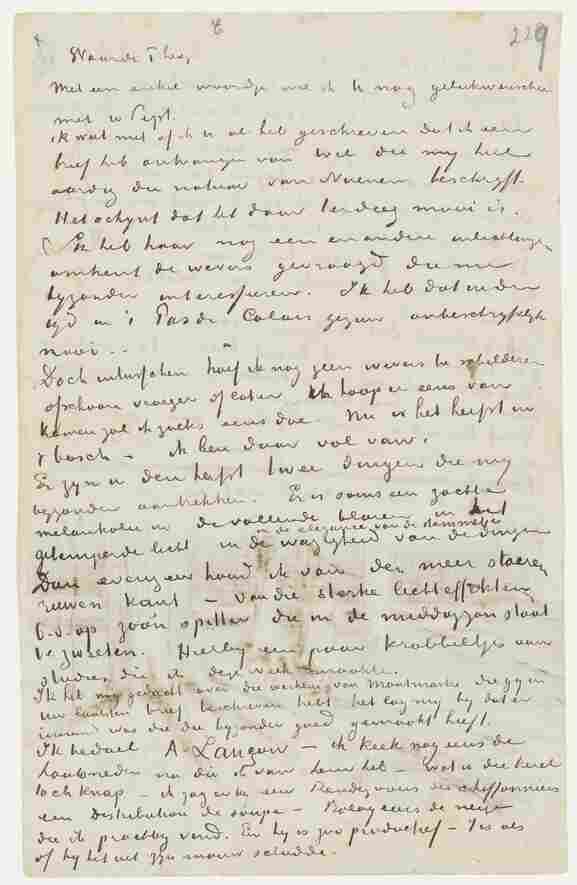 229
Waarde Theo,
Met een enkel woordje wil ik U nog gelukwenschen
met 10 Sept.
Ik weet niet of ik U al heb geschreven dat ik een
brief heb ontvangen van Wil die mij heel
aardig die natuur van Nuenen beschrijft.
Het schijnt dat het daar terdeeg mooi is.
Ik heb haar nog een en andere inlichtingen
omtrent de wevers gevraagd die me
bijzonder interesseeren. Ik heb dat in der
tijd in 't Pas de Calais gezien onbeschrijfelijk
mooi.
Doch intusschen hoef ik nog geen wevers te schilderen
ofschoon vroeger of later ik hoop er eens van
komen zal ik zoek eens doe. Nu is het herfst in
't bosch – ik ben daar vol van.
Er zijn in den herfst twee dingen die mij
bijzonder aantrekken. Er is soms een zachte
melankolie in de vallende blaren in het
getemperde licht in de wazigheid van de dingen
in de elegance van de stammetjes
Dan evenzeer houd ik van den meer stoeren
ruwen kant – van die sterke lichteffekten
b.v. op zoo'n spitter die in de middagzon staat
te zweeten. Hierbij een paar krabbeltjes van
studies die ik deze week maakte.
Ik heb nog gedacht over die werkers van Montmartre die gij in
uw laatsten brief beschreven hebt het lag mij bij dat er
iemand was die die bijzonder goed gemaakt heeft.
Ik bedoel A. Lançon – ik keek nog eens de
houtsneden na die ik van hem heb – wat is die kerel
toch knap – ik zag er bij een Rendezvous des chiffonniers
een Distribution de soupe – Balayeurs de neige
die ik prachtig vind. En hij is zoo productief – 't is als
of hij het uit zijn mouw schudde.